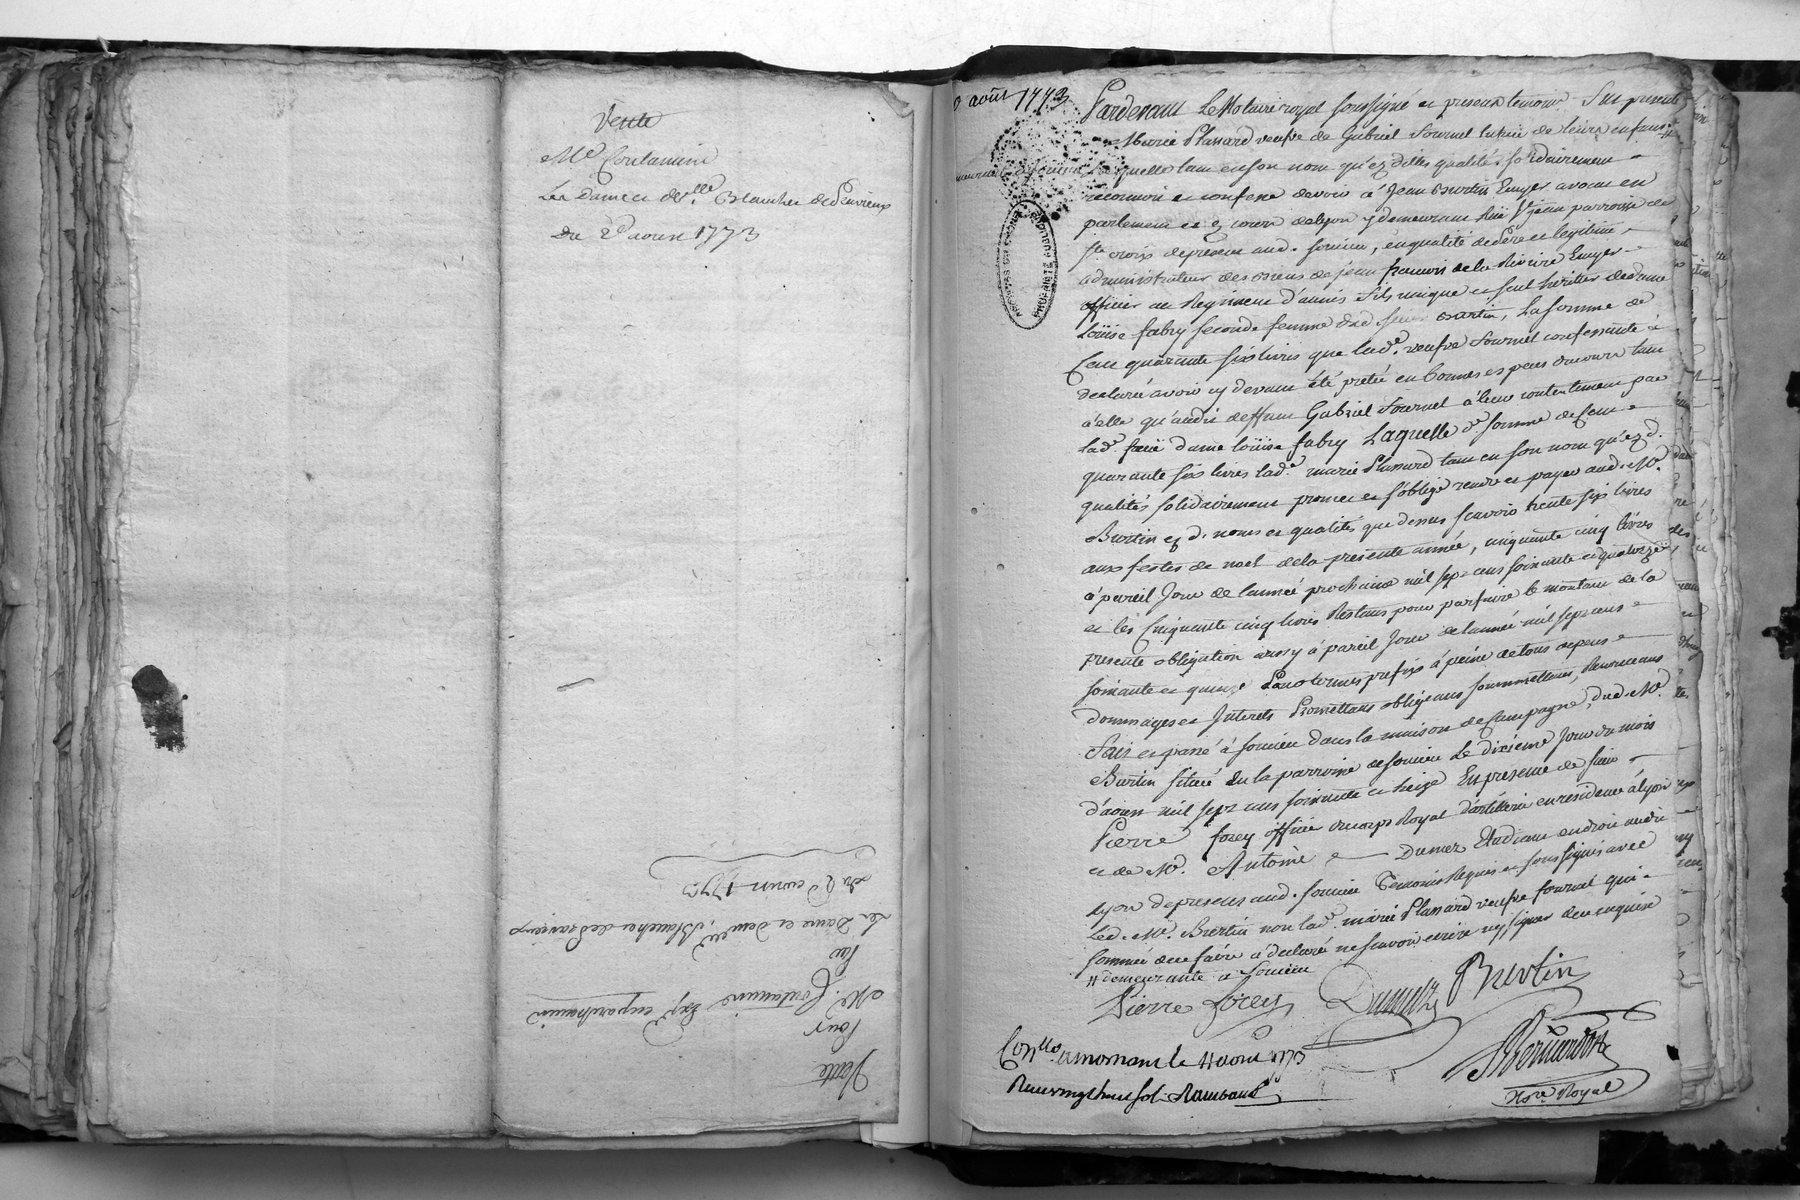 Vente
Me Contamine
Les Dames de
Du 2e aoust 1773
Vente
Pour
Me. Contamine
Par
Les Dame et demlle Blanchet de Pravieux
Du 2e aoust 1773
aoust 1773
Pardevant Le Notaire royal soussigné et presents temoins fut presente
Marie Plassard veufve de Gabriel Fournel tutrice de leurs enfans #
laquelle tant en son nom qu'ez dittes qualités solidairement
reconnoit et confesse devoir à Jean Burtin Ecuyer avocat en
parlement et ez cours de lyon y demeurant rüe St jean parroisse de
Ste croix de present aud. soucieu, en qualité de Pere et legitime
administrateur des biens de jean françois de la Riviere Ecuyer
officier au Regiment d'aunis fils unique et seul heritier de dame
Loüise fabry seconde femme dud. sieur Burtin, La somme de
Cent quarante six livres que lad. veufve Fournel confessante à
declaré avoir cy devant été pretée en bonnes especes du cours tant
à elle qu'audit deffunt Gabriel Fournel à leur contentement par
lad. feüe dame loüise fabry Laquelle de somme de Cent
quarante six livres lad. marie Plassard tant en son nom qu'ez d.
qualités solidairement promet et s'oblige rendre et payer aud. Mr.
Burtin ez d. noms et qualités que dessus scavoir trente six livres
aux festes de noel de la presente année, cinquante cinq livres
à pareil Jour de l'année prochaine mil sept cens soixante et quatorze
et les Cinquante cinq livres Restans pour parfaire le montant de la
presente obligation aussy à pareil Jour de l'année mil sept cens
soixante et quinze Pour termes prefixs à peine de tous depens
dommages et Interets Promettans obligeans soummettans, Renonceans
Fait et passé à soucieu dans la maison de Campagne, dud. Mr.
Burtin située en la parroisse de soucieu Le dixieme Jour du mois
d'aoust mil sept cens soixante et treize En presence de sieur
Pierre Forey officier du corps Royal d'artillerie en residence à Lyon
et de Mr. Antoine Dumez Etudiant en droit audit
Lyon de present aud. soucieu Temoins Requis et soussignés avec
Led. Mr. Burtin non lad. marie Plassard veufve fournel qui
sommée de ce faire a declaré ne scavoir ecrire ny signer de ce enquise
# demeurante à soucieu
Pierre Forey Dumez Burtin
Conllé a mornant le 11 aout 1773
Recu vingt huit sol. Rambaud
Nore. Royal